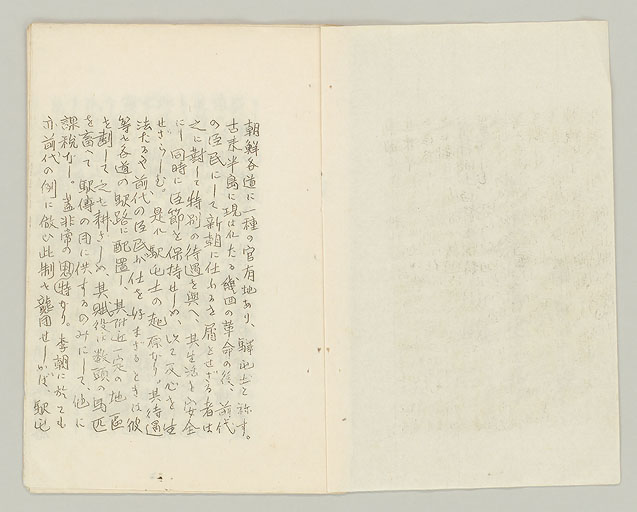 朝鮮各道に一種の官有地あり、驛屯土と称す。
古来半島に現はれたる幾回の革命の後、前代
の臣民にして新朝に仕ふるを屑とせざる者は
之に對して特別の待遇を與へ、其生活を安全
にし同時に臣節を保持せしめ、以て反心を生
せざらしむ。是れ駅屯土の起原なり。其待遇
法たるや前代の臣民か仕を好まざるときは彼
等を各道の駅路に配置し、其附近一定の地區
を劃して之を耕さしめ、其賦役は数頭の馬匹
を畜へて駅傳の用に供するのみにして他に
課税なし。蓋非常の恩特なり。李朝に於ても
亦前代の例に倣ひ此制を襲用せしかば、駅屯